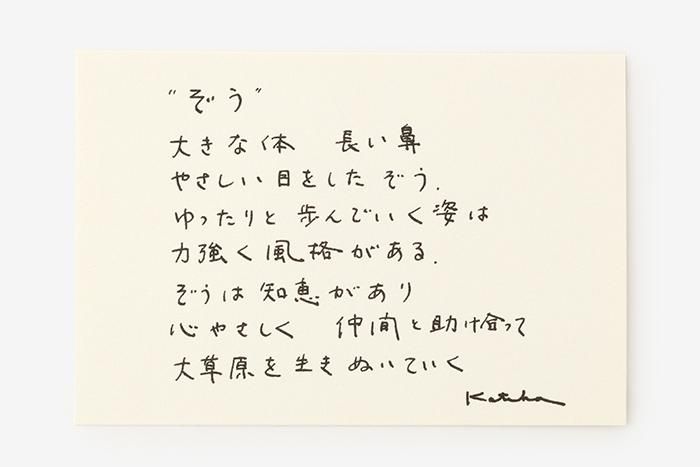 “ぞう”
大きな体　長い鼻
やさしい目をした ぞう.
ゆったりと 歩んでいく姿は
力強く風格がある.
ぞうは 知恵があり
心やさしく　仲間と助け合って
大草原を生きぬいていく